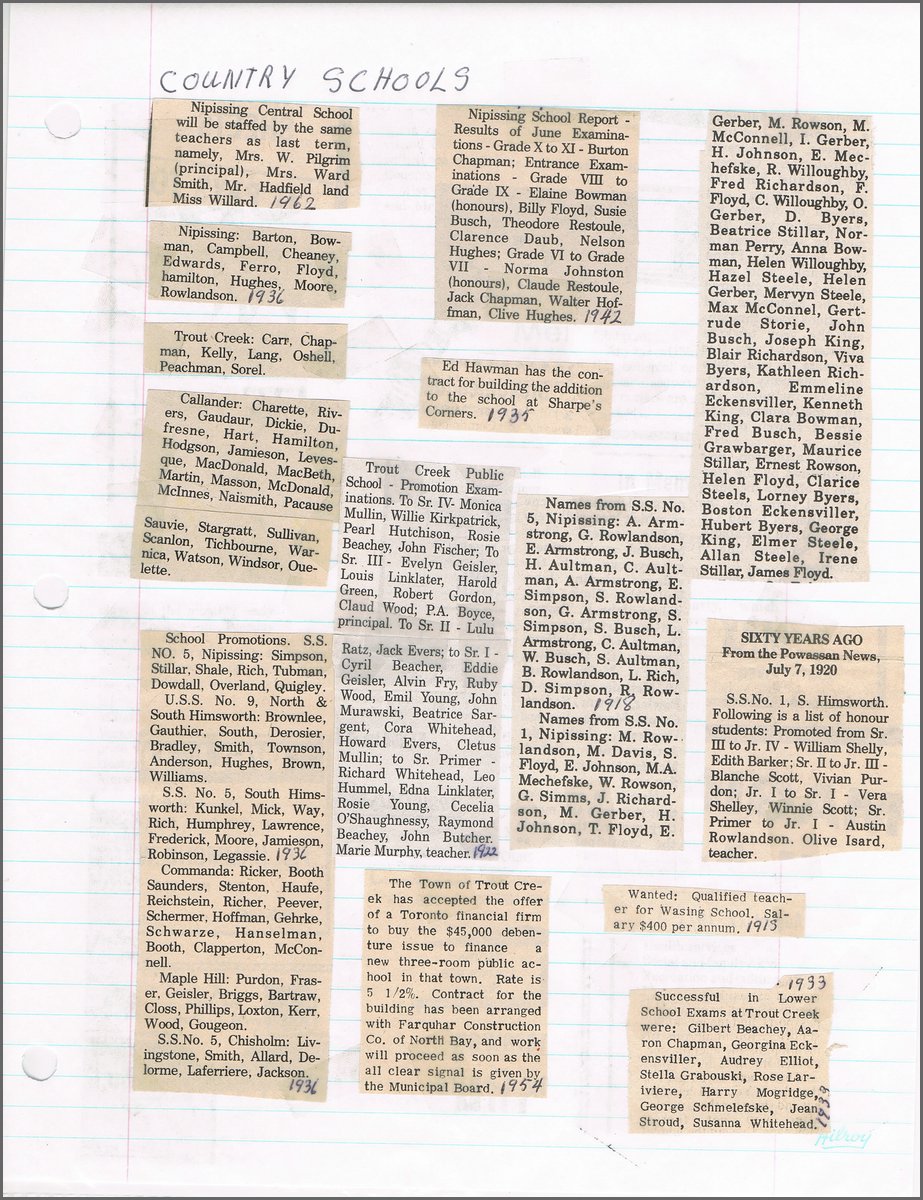 COUNTRY SCHOOLS
Nipissing Central School
will be staffed by the same
teachers as last term,
namely, Mrs. W. Pilgrim
(principal), Mrs. Ward
Smith, Mr. Hadfield land
Miss Willard. 1962
Nipissing: Barton, Bow-
man, Campbell, Cheaney,
Edwards, Ferro, Floyd,
hamilton, Hughes, Moore,
Rowlandson. 1936
Trout Creek: Carr, Chap-
man, Kelly, Lang, Oshell,
Peachman, Sorel.
Callander: Charette, Riv-
ers, Gaudaur, Dickie, Du-
fresne, Hart, Hamilton,
Hodgson, Jamieson, Leves-
que, MacDonald, MacBeth,
Martin, Masson, McDonald,
McInnes, Naismith, Pacause
Sauvie, Stargratt, Sullivan,
Scanlon, Tichbourne, War-
nica, Watson, Windsor, Oue-
lette.
School Promotions. S.S.
NO. 5, Nipissing: Simpson,
Stillar, Shale, Rich, Tubman,
Dowdall, Overland, Quigley.
U.S.S. No. 9, North &
South Himsworth: Brownlee,
Gauthier, South, Derosier,
Bradley, Smith, Townson,
Anderson, Hughes, Brown,
Williams.
S.S. No. 5, South Hims-
worth: Kunkel, Mick, Way,
Rich, Humphrey, Lawrence,
Frederick, Moore, Jamieson,
Robinson, Legassie. 1936
Commanda: Ricker, Booth
Saunders, Stenton, Haufe,
Reichstein, Richer, Peever,
Schermer, Hoffman, Gehrke,
Schwarze, Hanselman,
Booth, Clapperton, McCon-
nell.
Maple Hill: Purdon, Fras-
er, Geisler, Briggs, Bartraw,
Closs, Phillips, Loxton, Kerr,
Wood, Gougeon.
S.S.No. 5, Chisholm: Liv-
ingstone, Smith, Allard, De-
lorme, Laferriere, Jackson.
1936
Nipissing School Report -
Results of June Examina-
tions - Grade X to XI - Burton
Chapman; Entrance Exam-
inations - Grade VIII to
Grade IX - Elaine Bowman
(honours), Billy Floyd, Susie
Busch, Theodore Restoule,
Clarence Daub, Nelson
Hughes; Grade VI to Grade
VII - Norma Johnston
(honours), Claude Restoule,
Jack Chapman, Walter Hof-
fman, Clive Hughes. 1942
Ed Hawman has the con-
tract for building the addition
to the school at Sharpe's
Corners. 1935
Trout Creek Public
School - Promotion Exam-
inations. To Sr. IV- Monica
Mullin, Willie Kirkpatrick,
Pearl Hutchison, Rosie
Beachey, John Fischer; To
Sr. III - Evelyn Geisler,
Louis Linklater, Harold
Green, Robert Gordon,
Claud Wood; P.A. Boyce,
principal. To Sr. II - Lulu
Ratz, Jack Evers; to Sr. I -
Cyril Beacher, Eddie
Geisler, Alvin Fry, Ruby
Wood, Emil Young, John
Murawski, Beatrice Sar-
gent, Cora Whitehead,
Howard Evers, Cletus
Mullin; to Sr. Primer -
Richard Whitehead, Leo
Hummel, Edna Linklater,
Rosie Young, Cecelia
O'Shaughnessy, Raymond
Beachey, John Butcher.
Marie Murphy, teacher. 1922
The Town of Trout Cre-
ek has accepted the offer
of a Toronto financial firm
to buy the $45,000 deben-
ture issue to finance a
new three-room public ac-
hool in that town. Rate is
5 1/2%. Contract for the
building has been arranged
with Farquhar Construction
Co. of North Bay, and work
will proceed as soon as the
all clear signal is given by
the Municipal Board. 1954
Names from S.S. No.
5, Nipissing: A. Arm-
strong, G. Rowlandson,
E. Armstrong, J. Busch,
H. Aultman, C. Ault-
man, A. Armstrong, E.
Simpson, S. Rowland-
son, G. Armstrong, S.
Simpson, S. Busch, L.
Armstrong, C. Aultman,
W. Busch, S. Aultman,
B. Rowlandson, L. Rich,
D. Simpson, R. Row-
landson. 1918
Names from S.S. No.
1, Nipissing: M. Row-
landson, M. Davis, S.
Floyd, E. Johnson, M.A.
Mechefske, W. Rowson,
G. Simms, J. Richard-
son, M. Gerber, H.
Johnson, T. Floyd, E.
Gerber, M. Rowson, M.
McConnell, I. Gerber,
H. Johnson, E. Mec-
hefske, R. Willoughby,
Fred Richardson, F.
Floyd, C. Willoughby, O.
Gerber, D. Byers,
Beatrice Stillar, Nor-
man Perry, Anna Bow-
man, Helen Willoughby,
Hazel Steele, Helen
Gerber, Mervyn Steele,
Max McConnel, Gert-
rude Storie, John
Busch, Joseph King,
Blair Richardson, Viva
Byers, Kathleen Rich-
ardson, Emmeline
Eckensviller, Kenneth
King, Clara Bowman,
Fred Busch, Bessie
Grawbarger, Maurice
Stillar, Ernest Rowson,
Helen Floyd, Clarice
Steels, Lorney Byers,
Boston Eckensviller,
Hubert Byers, George
King, Elmer Steele,
Allan Steele, Irene
Stillar, James Floyd.
SIXTY YEARS AGO
From the Powassan News,
July 7, 1920
S.S.No. 1, S. Himsworth.
Following is a list of honour
students: Promoted from Sr.
III to Jr. IV - William Shelly,
Edith Barker; Sr. II to Jr. III -
Blanche Scott, Vivian Pur-
don; Jr. I to Sr. I - Vera
Shelley, Winnie Scott; Sr.
Primer to Jr. I - Austin
Rowlandson. Olive Isard,
teacher.
Wanted: Qualified teach-
er for Wasing School. Sal-
ary $400 per annum. 1913
1933
Successful in Lower
School Exams at Trout Creek
were: Gilbert Beachey, Aa-
ron Chapman, Georgina Eck-
ensviller, Audrey Elliot,
Stella Grabouski, Rose Lar-
iviere, Harry Mogridge,
George Schmelefske, Jean
Stroud, Susanna Whitehead.
1933
Hilroy